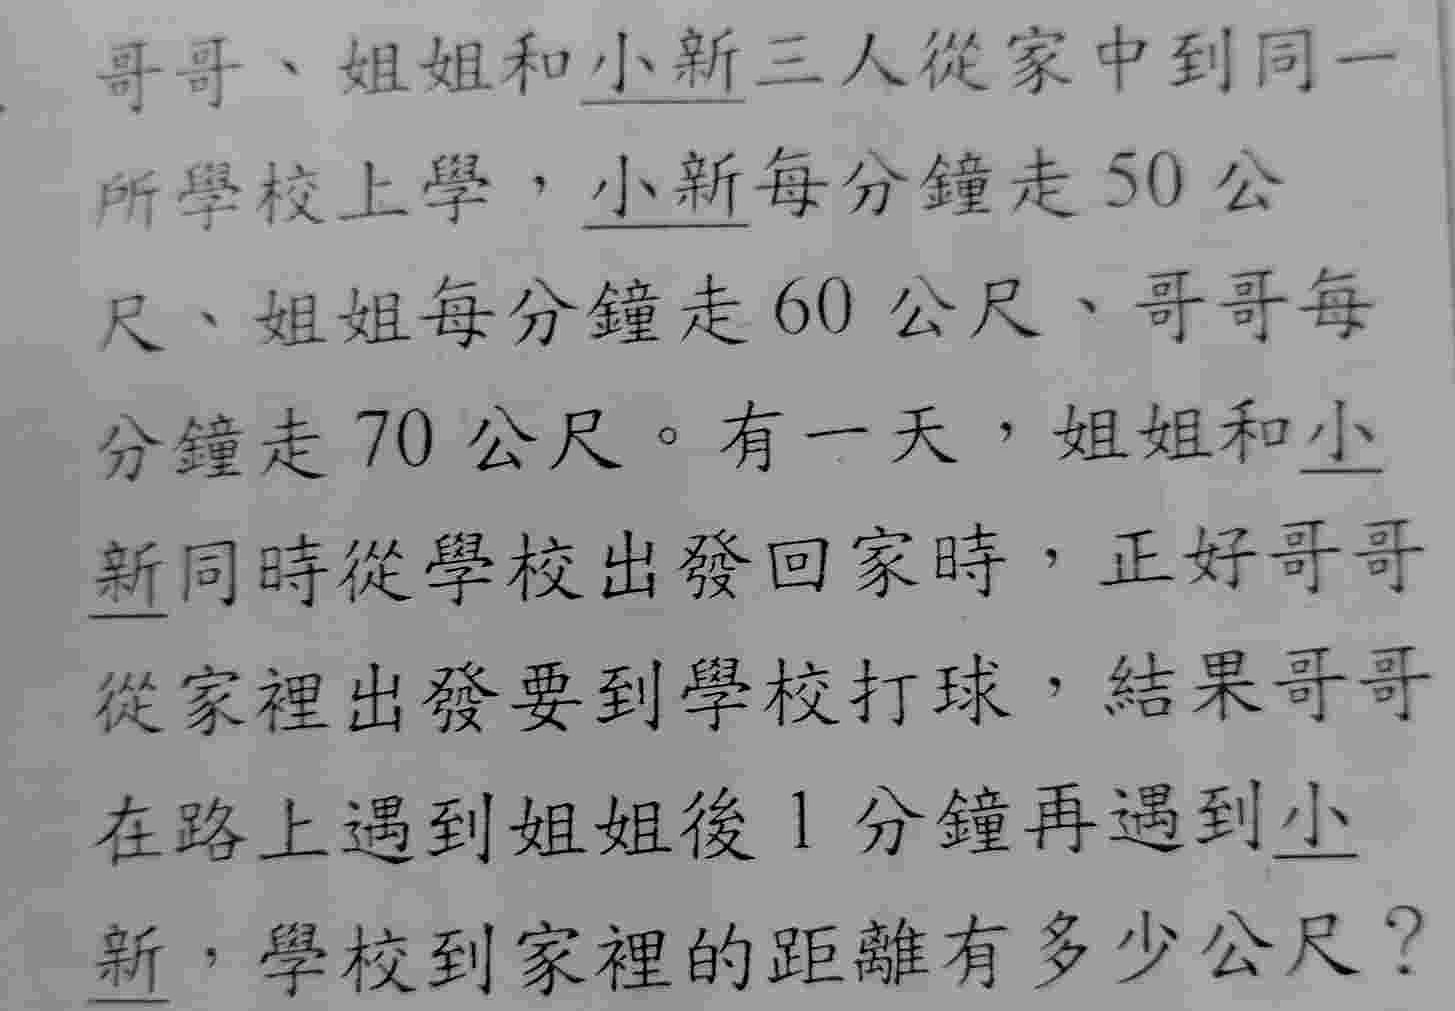 哥哥、姐姐和小新三人從家中到同一
所學校上學，小新每分鐘走50公
尺、姐姐每分鐘走60公尺、哥哥每
分鐘走70公尺。有一天，姐姐和小
新同時從學校出發回家時，正好哥哥
從家裡出發要到學校打球，結果哥哥
在路上遇到姐姐後1分鐘再遇到小
新，學校到家裡的距離有多少公尺？